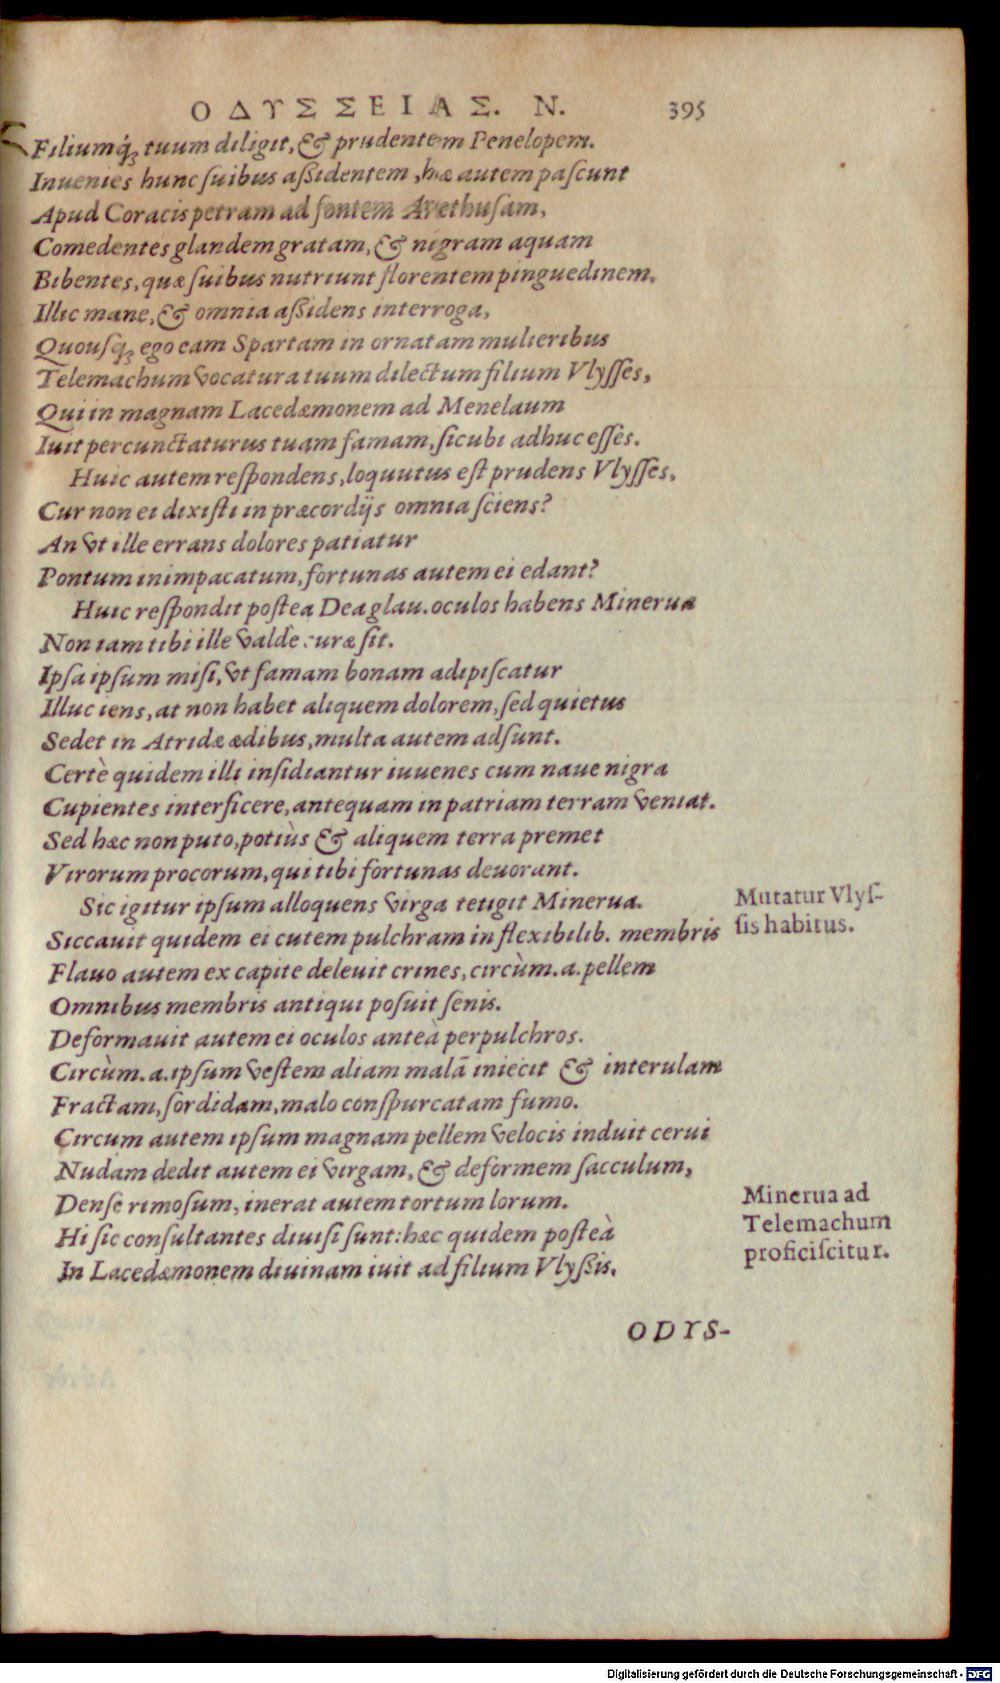 ΟΔΥΣΣΕΙΑΣ. Ν. 395
Filiumq́ꝫ tuum diligit, & prudentem Penelopem.
Inuenies hunc ſuibus aſsidentem, hæ autem paſcunt
Apud Coracis petram ad fontem Arethuſam,
Comedentes glandem gratam, & nigram aquam
Bibentes, quæ ſuibus nutriunt florentem pinguedinem.
Illic mane, & omnia aſsidens interroga,
Quouſq́ꝫ ego eam Spartam in ornatam mulieribus
Telemachum vocatura tuum dilectum filium Vlyſſes,
Qui in magnam Lacedæmonem ad Menelaum
Iuit percunctaturus tuam famam, ſicubi adhuc eſſes.
Huic autem reſpondens, loquutus eſt prudens Vlyſſes.
Cur non ei dixiſti in præcordijs omnia ſciens?
An vt ille errans dolores patiatur
Pontum in impacatum, fortunas autem ei edant?
Huic reſpondit poſtea Dea glau. oculos habens Minerua
Non iam tibi ille valdè curæ ſit.
Ipſa ipſum miſi, vt famam bonam adipiſcatur
Illuc iens, at non habet aliquem dolorem, ſed quietus
Sedet in Atridæ ædibus, multa autem adſunt.
Certè quidem illi inſidiantur iuuenes cum naue nigra
Cupientes interficere, antequam in patriam terram veniat.
Sed hæc non puto, potiùs & aliquem terra premet
Virorum procorum, qui tibi fortunas deuorant.
Sic igitur ipſum alloquens virga tetigit Minerua.
Mutatur Vlyſ-
ſis habitus.
Siccauit quidem ei cutem pulchram in flexibilib. membris
Flauo autem ex capite deleuit crines, circùm. a. pellem
Omnibus membris antiqui poſuit ſenis.
Deformauit autem ei oculos anteà perpulchros.
Circùm. a. ipſum veſtem aliam malā iniecit & interulam
Fractam, ſordidam, malo conſpurcatam fumo.
Circum autem ipſum magnam pellem velocis induit cerui
Nudam dedit autem ei virgam, & deformem ſacculum,
Denſe rimoſum, inerat autem tortum lorum.
Hi ſic conſultantes diuiſi ſunt: hæc quidem poſteà
In Lacedæmonem diuinam iuit ad filium Vlyſsis.
Minerua ad
Telemachum
proficiſcitur.
ODYS-
Digitalisierung gefördert durch die Deutsche Forschungsgemeinschaft - DFG